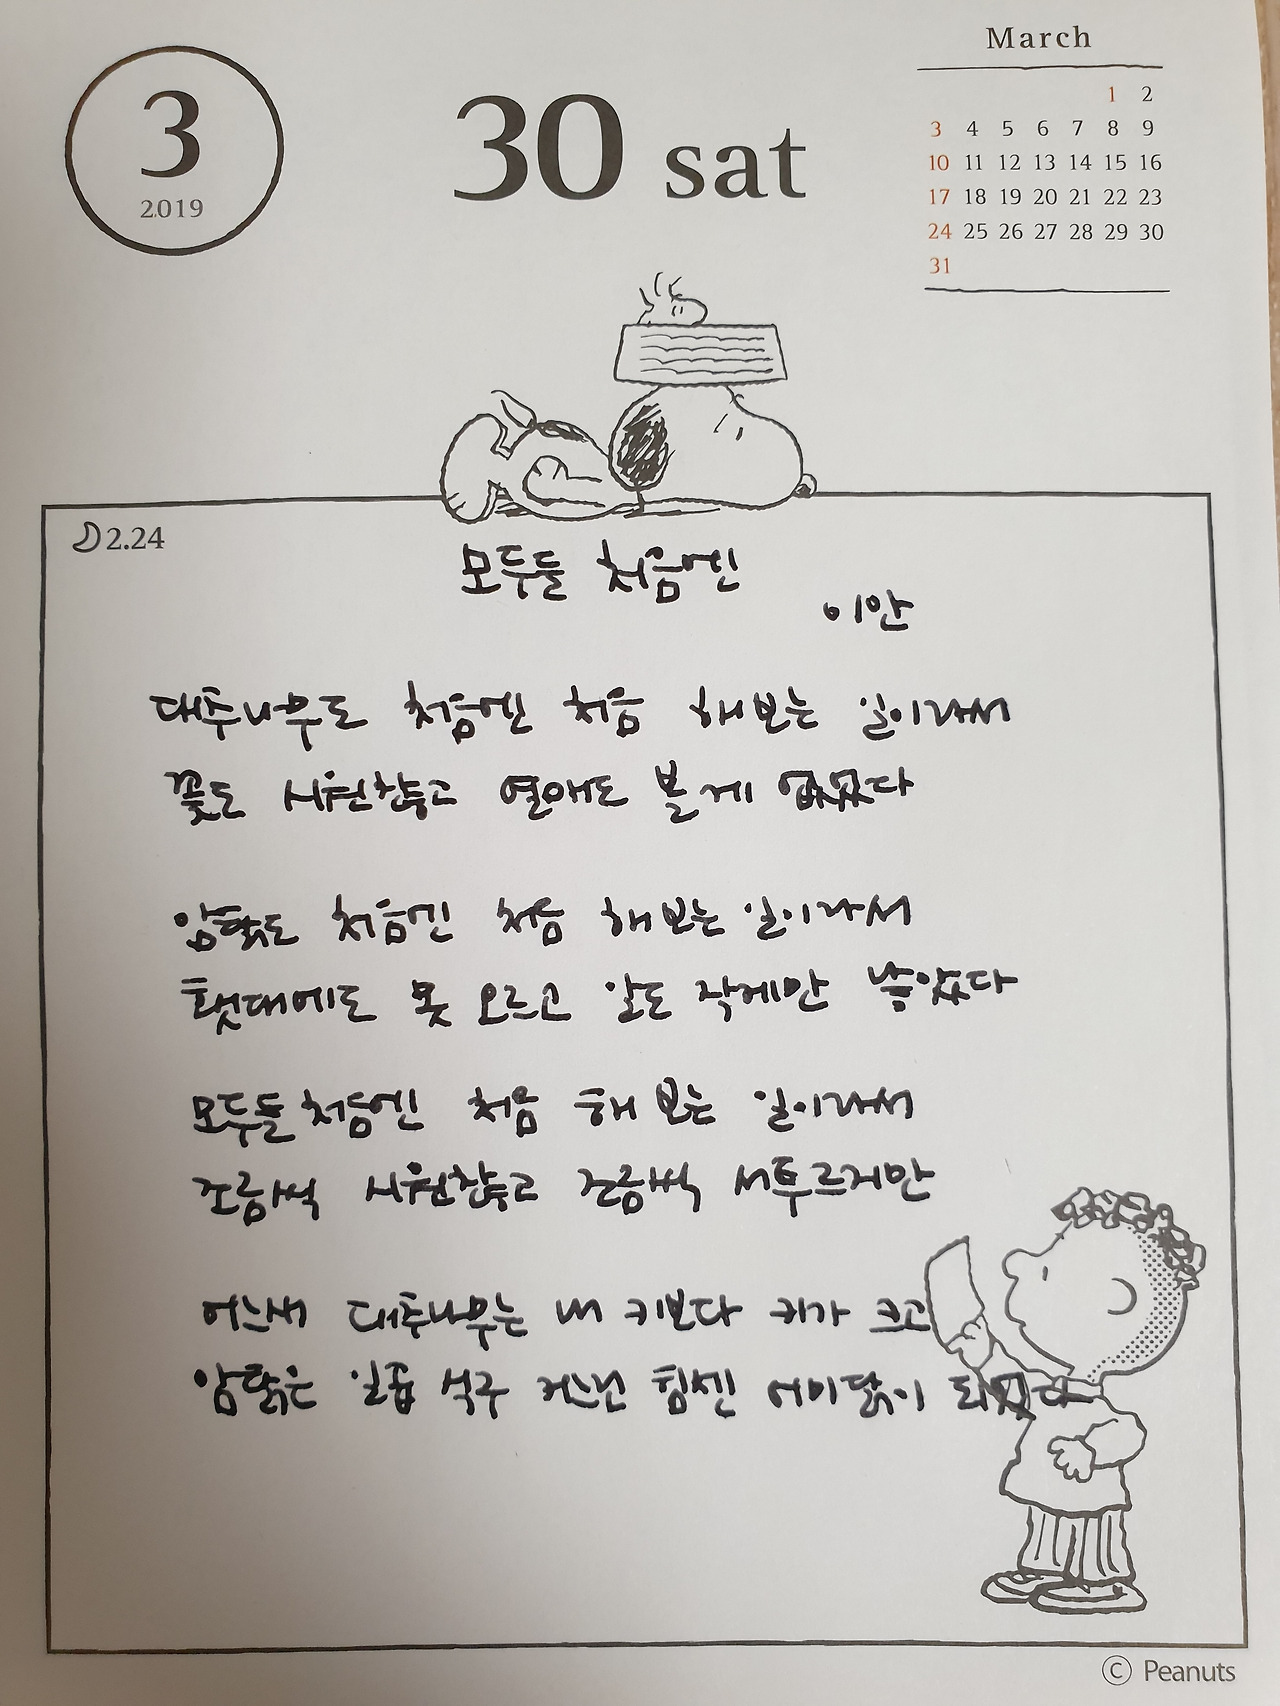 3
2019
30 sat
March
1 2
3 4 5 6 7 8 9
10 11 12 13 14 15 16
17 18 19 20 21 22 23
24 25 26 27 28 29 30
31
2.24
모두들 처음엔
이안
대추나무도 처음엔 처음 해보는 일이라서
꽃도 시원찮고 열매도 볼 게 없었다
암탉도 처음엔 처음 해보는 일이라서
횃대에도 못 오르고 알도 작게만 낳았다
모두들 처음엔 처음 해 보는 일이라서
조금씩 시원찮고 조금씩 서투르지만
어느새 대추나무는 내 키보다 키가 크고
암탉은 일곱 식구 거느린 힘센 어미닭이 되었다
© Peanuts